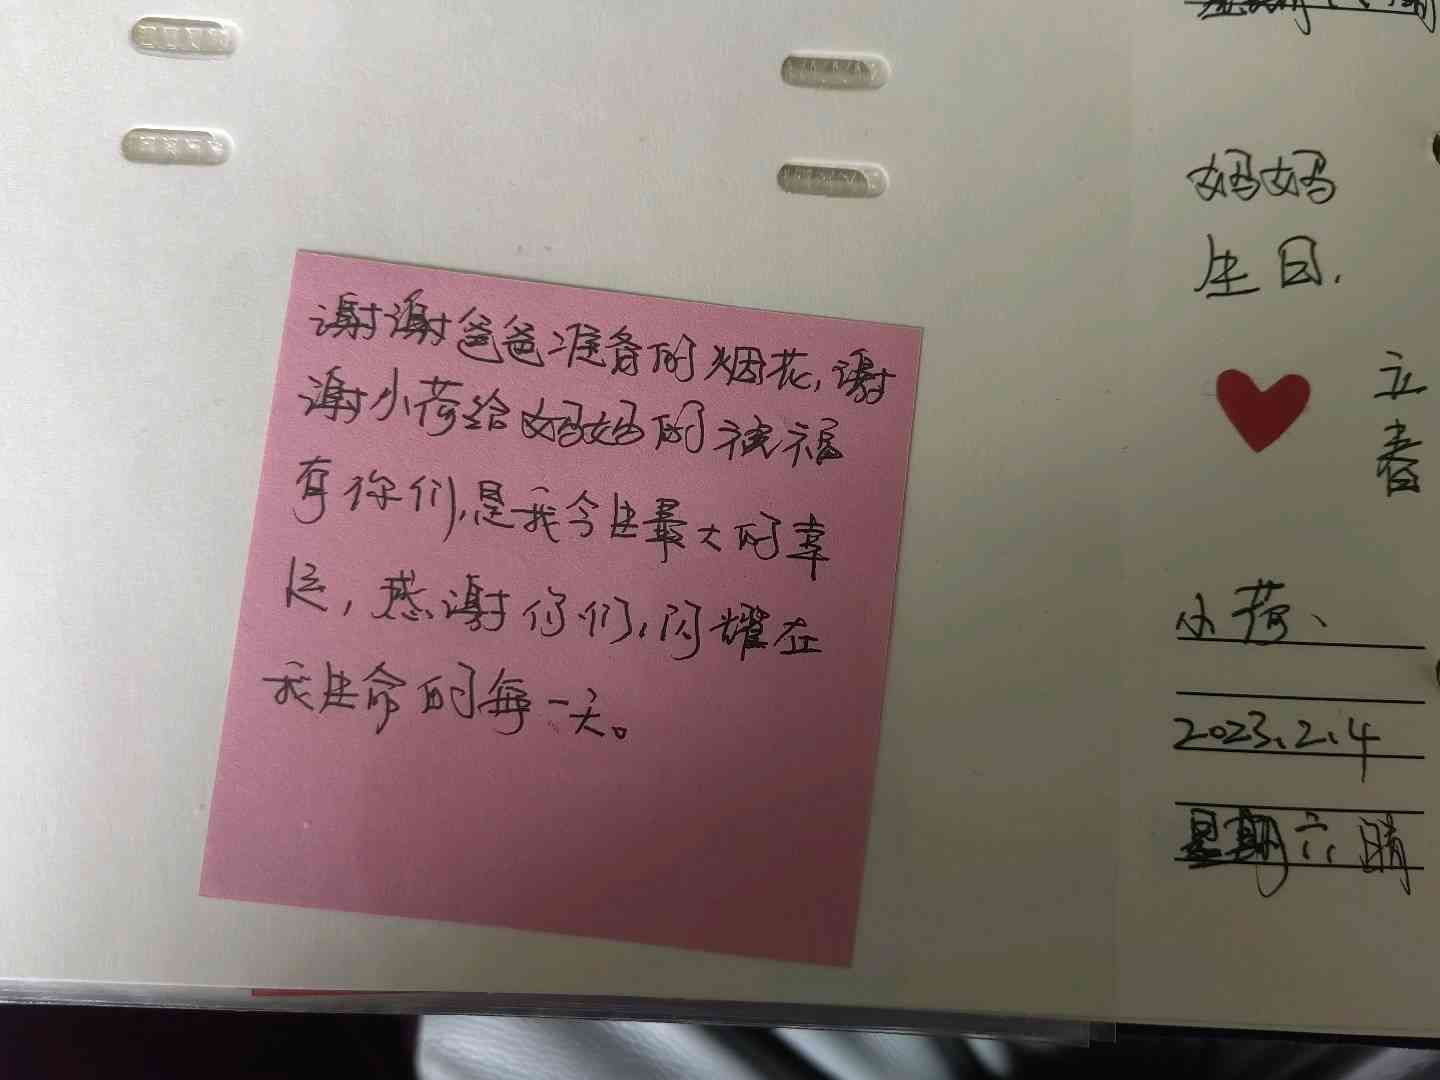 谢谢爸爸准备的烟花,谢
谢小荷给妈妈的祝福
有你们,是我今生最大的幸
运,感谢你们,闪耀在
我生命的每一天。
妈妈
生日.
立春
小荷、
2023.2.4
星期六 晴